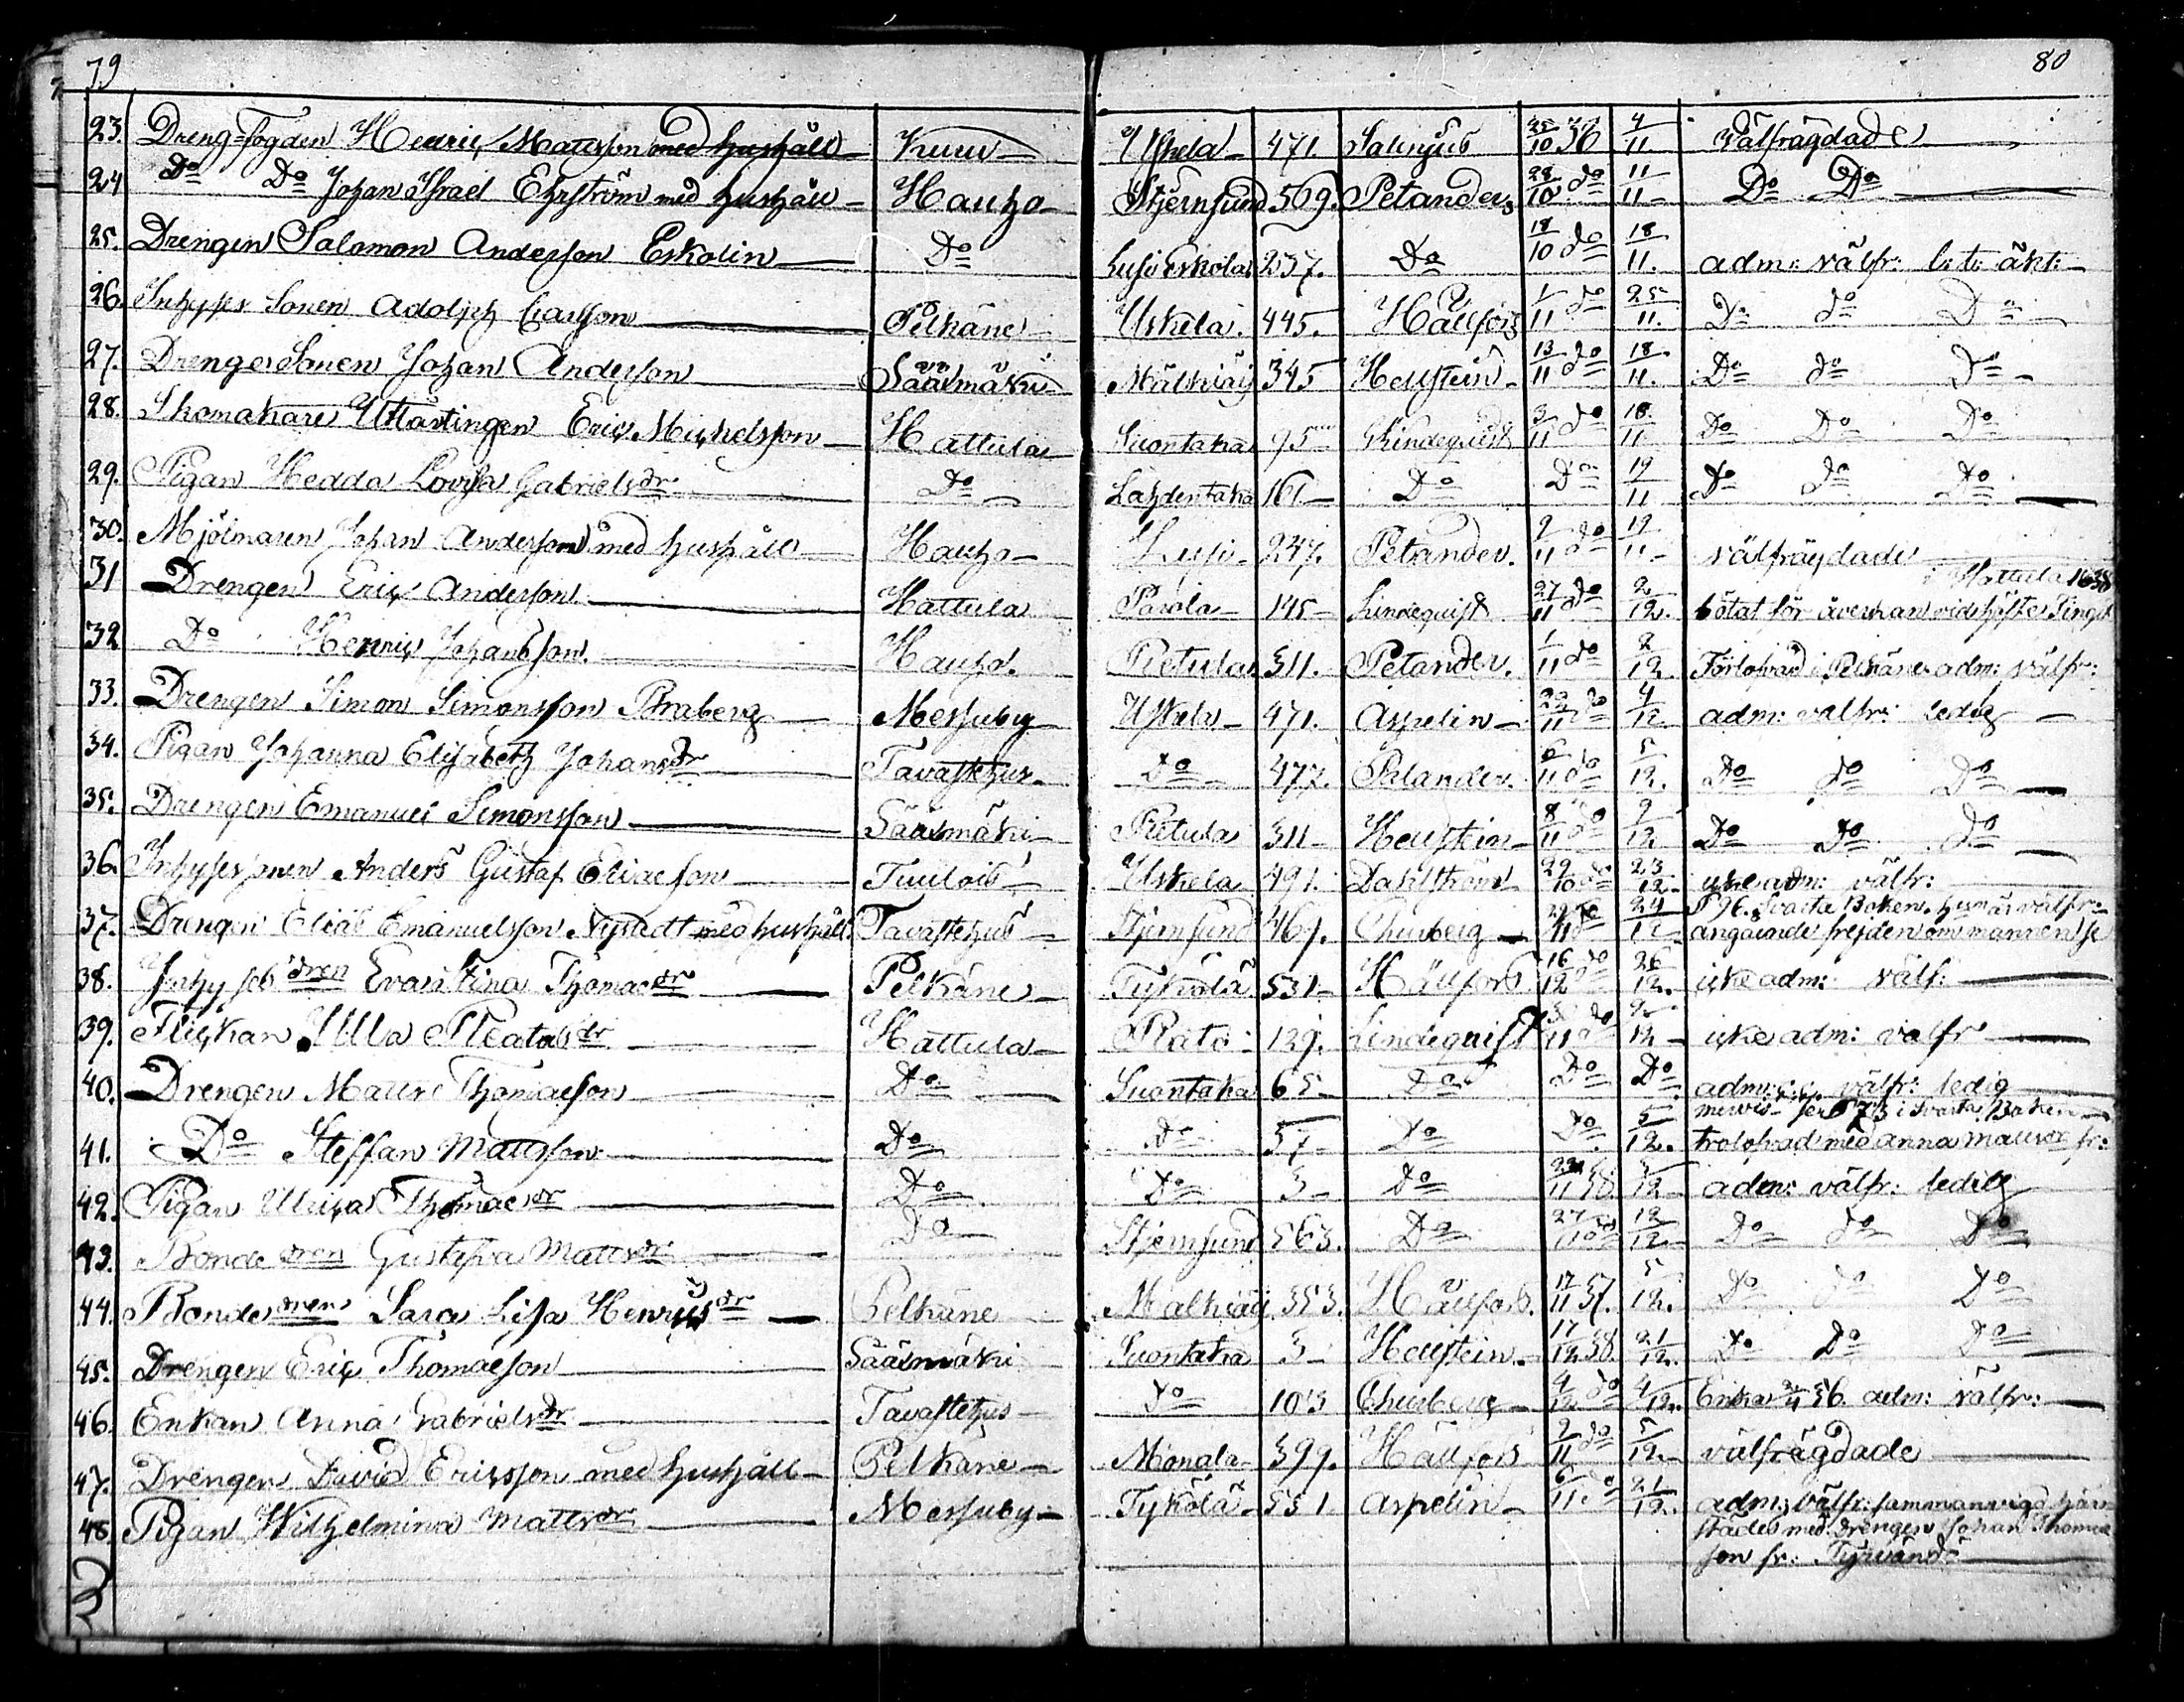 79
80
23. Dreng=fogden Hedric Mattsson med hushåll Kuru Uskela 471. Salinjus 25/10 36 4/11 välfrägdade
24 Do Do Johan Israel Ehrström med hushåll Hauho Stjernsund 509. Petander 28/10 do 11/11 Do Do
25. Drengen Salomon Andersson Eskolin Do Lusi Eskola 237. Do 18/10 do 18/11. adm: välfr: l: t: äkt:
26. Inhyses Sonen Adolph Pelkäne Uskela 445. Hällfors 1/11 do 25/11. Do do Do
27. Drenge Sonen Johan Andersson Sääxmäki Mälkiäis 345 Hellstein 13/11 do 18/11. Do do Do
28. Skomakare Eric Michelsson Hattula Suontaka 95 Lindequist 3/11 do 18/11 Do Do Do
29. Pigan Hedda Lovisa Gabrielsdr Do Lahdentaka 161 Do Do 19/11 Do do Do
30. Mjölnaren Johan Andersson med hushåll Hauho Lusi 247. Petander. 9/11 do 19/11 välfrägdade
31 Drengen Eric Andersson Hattula Parola 145 Lindequist 27/11 do 2/12. i Hattula 1838
bötat för åverkan vid höste Tinget
32 Do Henric Johansson. Hauho. Pietula 311. Petander. 1/11 do 2/12 Förlofvad i Pelkäne adm: välfr:
33. Drengen Simon Simonsson Braberg Messuby Uskela 471. Aspelin 29/11 do 4/12 adm: välfr: ledig
34. Pigan Johanna Elisabeth Johansdr Tavastehus Do 477. Palander. 6/11 do 5/12. Do do Do
35. Drengen Emanuel Simonsson Sääxmäki Pietula 311 Hellstein 8/11 do 9/12 Do Do Do
36. Inhyses sonen Anders Gustaf Ericsson Tuulois Uskela 491. Dahlström 29/10 do 23/12. icke adm: välfr:
37. Drengen Elias Emanuelsson Nystadt med hushåll. Tavastehus Stjernsund 469. Churberg 24/12 P 96. Svarta Boken. hustrus välfr:
angående frejden om mannen se
38. Inhyses dren Eva Stina Thomasdr Pelkäne Tykölä 531 Hällfors 16/12 do 26/12. icke adm: välf:
39. Flickan Ulla Hattula 129. Lindequist icke adm: välfr
40. Drengen Matts Thomasson Do Suontaka 65 Do Do Do. adm: välfr: ledig
41. Do Steffan Mattsson Do Do 57 Do Do. 5/12. se P 73 i Svarta Boken
trolofvad med Anna Mattsdr fr:
42. Pigan Ulrica Thomasdr Do Do 3 Do 11 38. 12 adm: välfr: ledig
43. Bonde dren Gustafva Mattsdr Do Stjernsund 563. Do 27/11 do 12/12 Do do Do
44. Bonde dren Sara Lisa Henricsdr Pelkäne Mälkiäis 353. Hällfors. 17/11 37. 5/12. Do do Do
45. Drengen Eric Thomasson Sääxmäki Suontaka 3 Hellstein. 17/12 38. 21/12. Do Do Do
46. Enkan Anna Gabrielsdr Tavastehus Do 103 Churberg 4/12 do 4/12. Enka 36. adm: välfr:
47. Drengen David Ericsson med hushåll Pelkäne Monala 399. Hällfors 9/11 do 5/12. välfrägdade
48. Pigan Wilhelmina Mattsdr Messuby Tykölä 531 Aspelin 6/11. do 21/12. adm: välfr: sammanvigd här
städes med drengen Johan Thomas
son fr: Tyrvändö